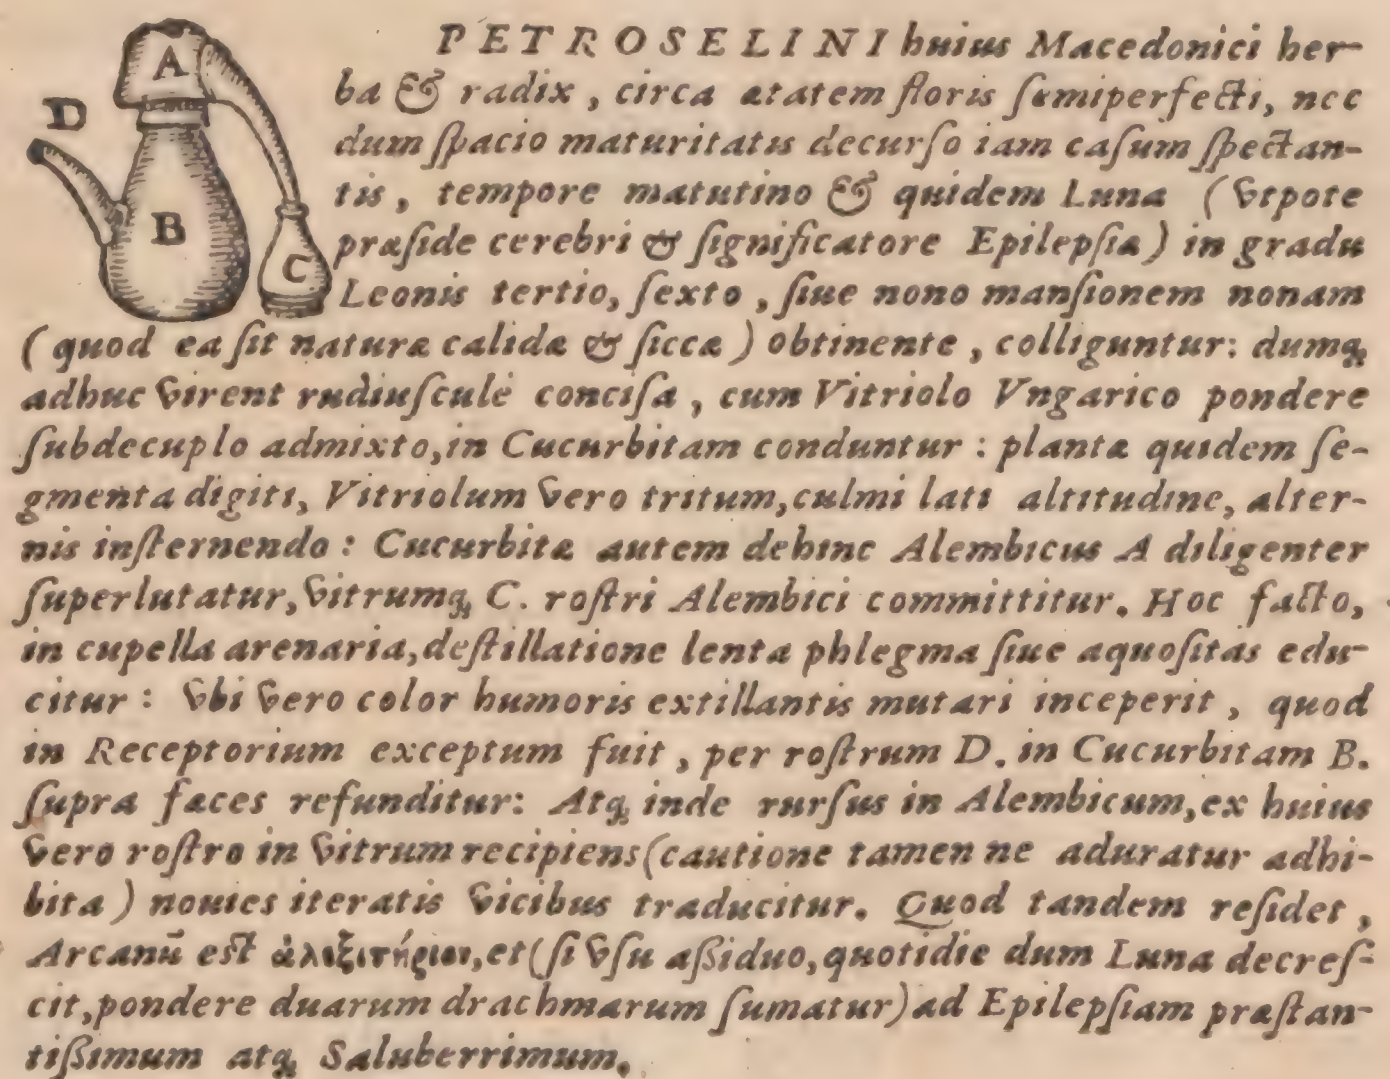 A
D
B
C
PETROSELINI huius Macedonici her-
ba & radix, circa ætatem floris ſemiperfecti, nec
dum ſpacio maturitatis decurſo iam caſum ſpectan-
tis, tempore matutino & quidem Luna (vtpote
præſide cerebri & ſignificatore Epilepſiæ) in gradu
Leonis tertio, ſexto, ſiue nono manſionem nonam
(quod ea ſit naturæ calidæ & ſiccæ) obtinente, colliguntur: dumq;
adhuc virent rudiuſculè conciſa, cum Vitriolo Vngarico pondere
ſubdecuplo admixto, in Cucurbitam conduntur: plantæ quidem ſe-
gmenta digiti, Vitriolum vero tritum, culmi lati altitudine, alter-
nis inſternendo: Cucurbitæ autem dehinc Alembicus A diligenter
ſuperlutatur, vitrumq; C. roſtri Alembici committitur. Hoc facto,
in cupella arenaria, deſtillatione lenta phlegma ſiue aquoſitas edu-
citur: vbi vero color humoris extillantis mutari inceperit, quod
in Receptorium exceptum fuit, per roſtrum D. in Cucurbitam B.
ſupra fæces refunditur: Atq; inde rurſus in Alembicum, ex huius
vero roſtro in vitrum recipiens (cautione tamen ne aduratur adhi-
bita) nouies iteratis vicibus traducitur. Quod tandem reſidet,
Arcanũ est ἀλεξιτήριον, et (ſi vſu aßiduo, quotidie dum Luna decreſ-
cit, pondere duarum drachmarum ſumatur) ad Epilepſiam præſtan-
tißimum atq; Saluberrimum.